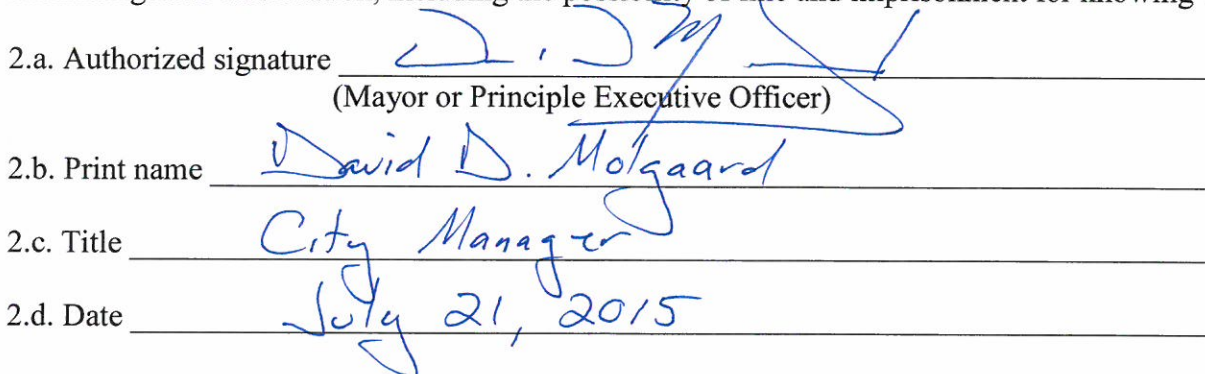 2.a. Authorized signature
(Mayor or Principle Executive Officer)
2.b. Print name David D. Molgaard
2.c. Title City Manager
2.d. Date July 21, 2015